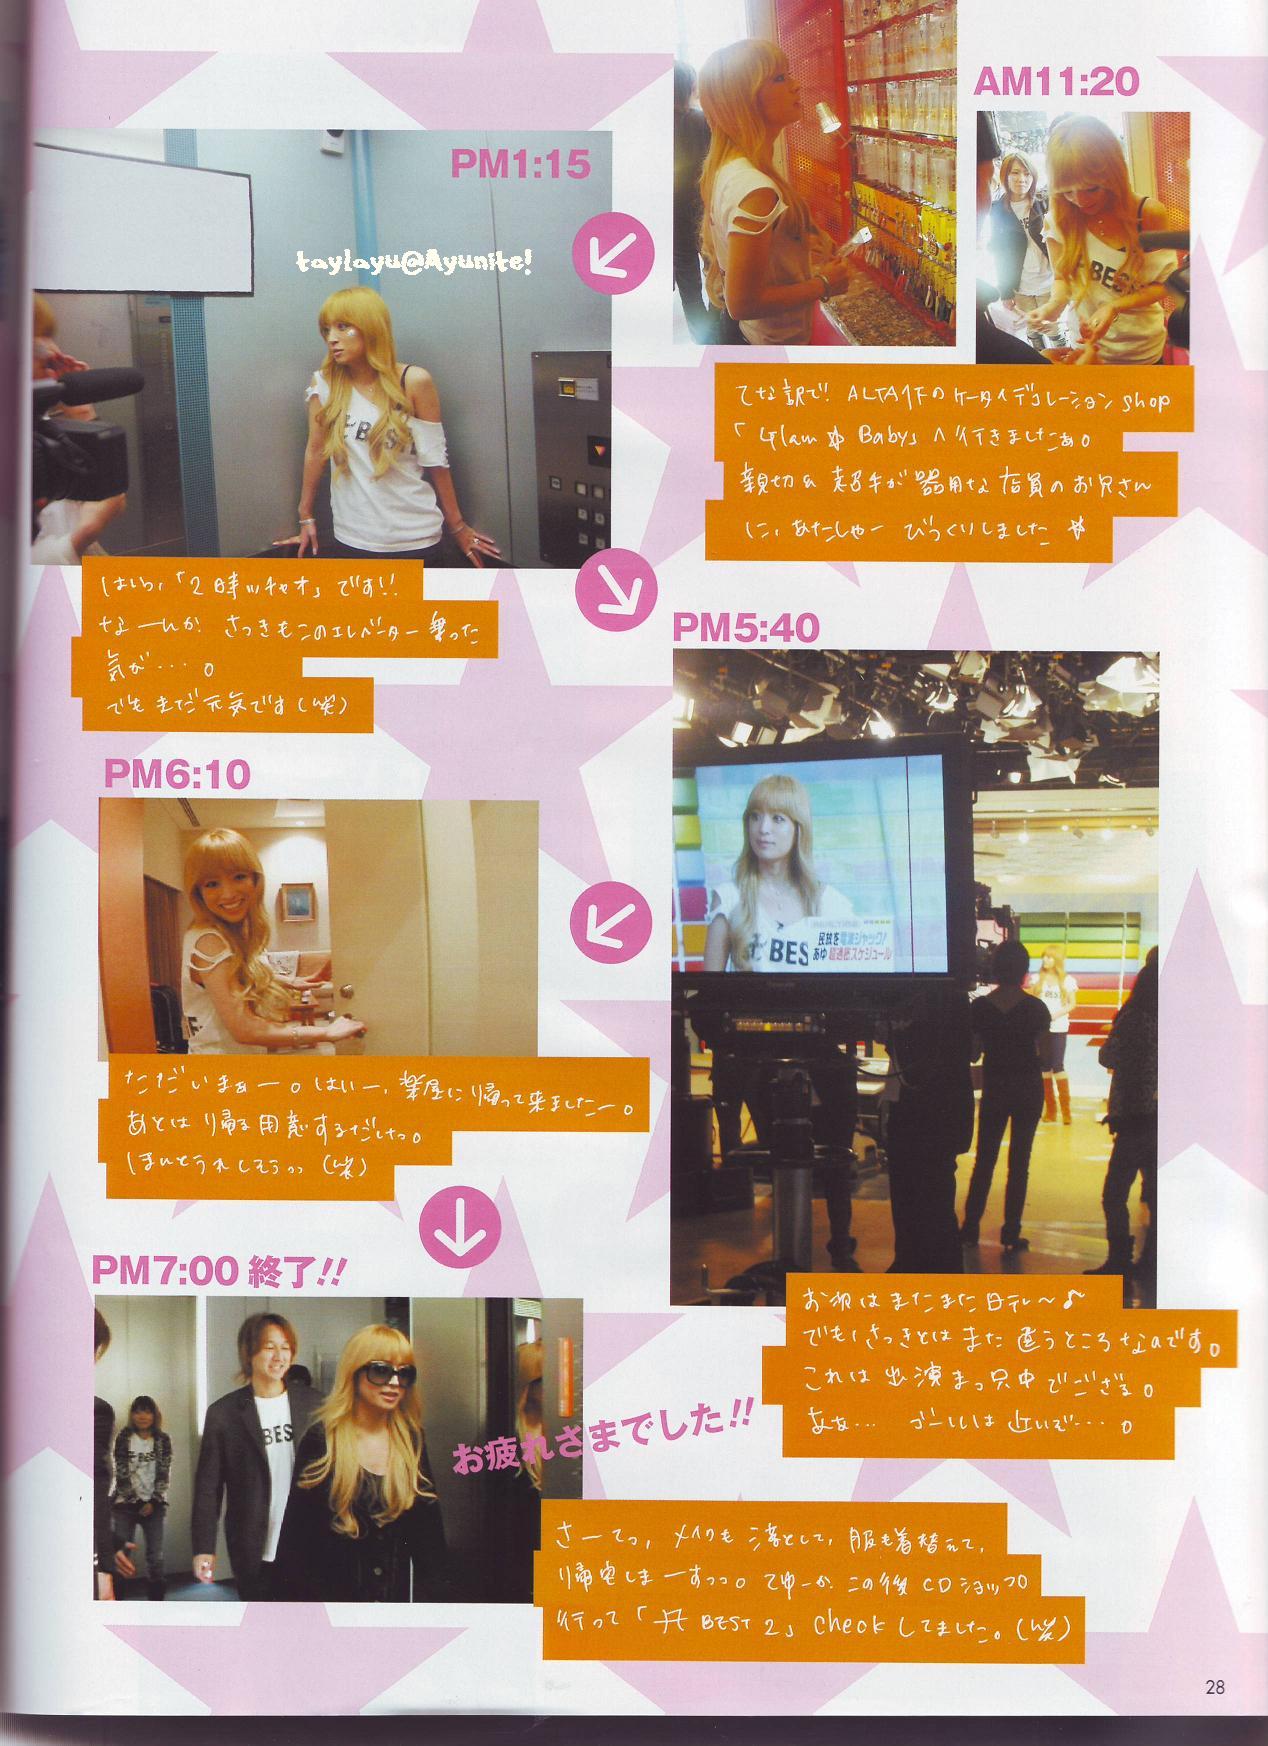 AM11:20
BES
てな訳で! ALTA1Fのケータイデコレーションshop
「Glam☆Baby」へ行きましたぁ。
親切&超手が器用な店員のお兄さん
に、あたしゃー びっくりしました☆
PM1:15
taylayu@Ayunite!
BEST
はいっ、「2時ッチャオ」です!!
なーんか、さっきもこのエレベーター乗った
気が・・・。
でもまだ元気です(笑)
PM5:40
BES
民放を電波ジャック!
あゆ 超過密スケジュール
お次はまたまた日テレ〜♪
でも、さっきとはまた違うところなのです。
これは出演まっ只中でござる。
あぁ… ゴールは近いぞ・・・。
PM6:10
ただいまぁー。はいー、楽屋に帰って来ましたー。
あとは帰る用意するだけっ。
ほんとうれしそうっっ(笑)
PM7:00 終了!!
BES
お疲れさまでした!!
さーてっ、メイクも落として、服も着替えて、
帰宅しまーすっっ。てゆーか この後CDショップ
行って「A BEST 2」checkしてました。(笑)
28